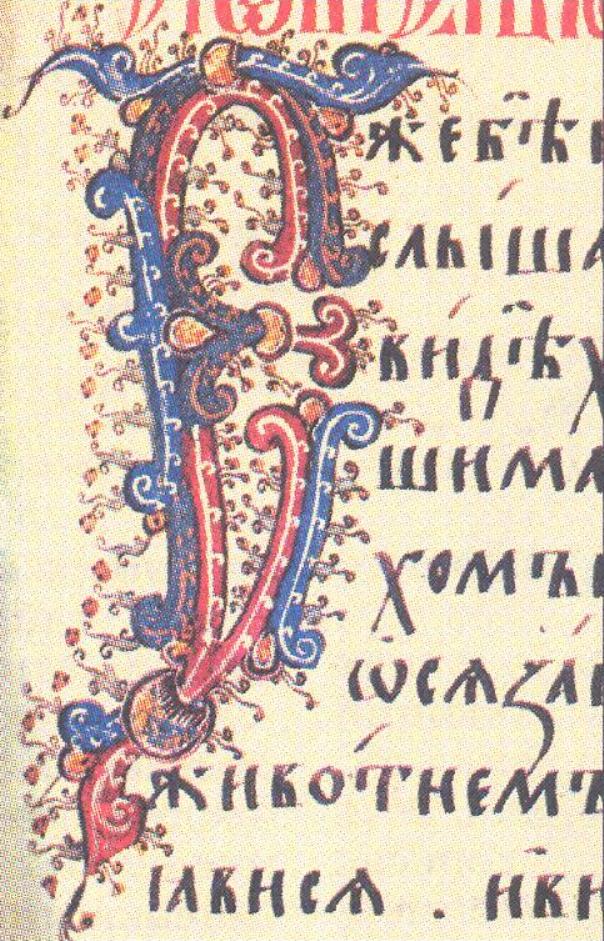 Єжебѣ
слꙑша
видѣх
шима
хомъ
ѡсѧза
животнемъ
ꙗвисѧ . иви